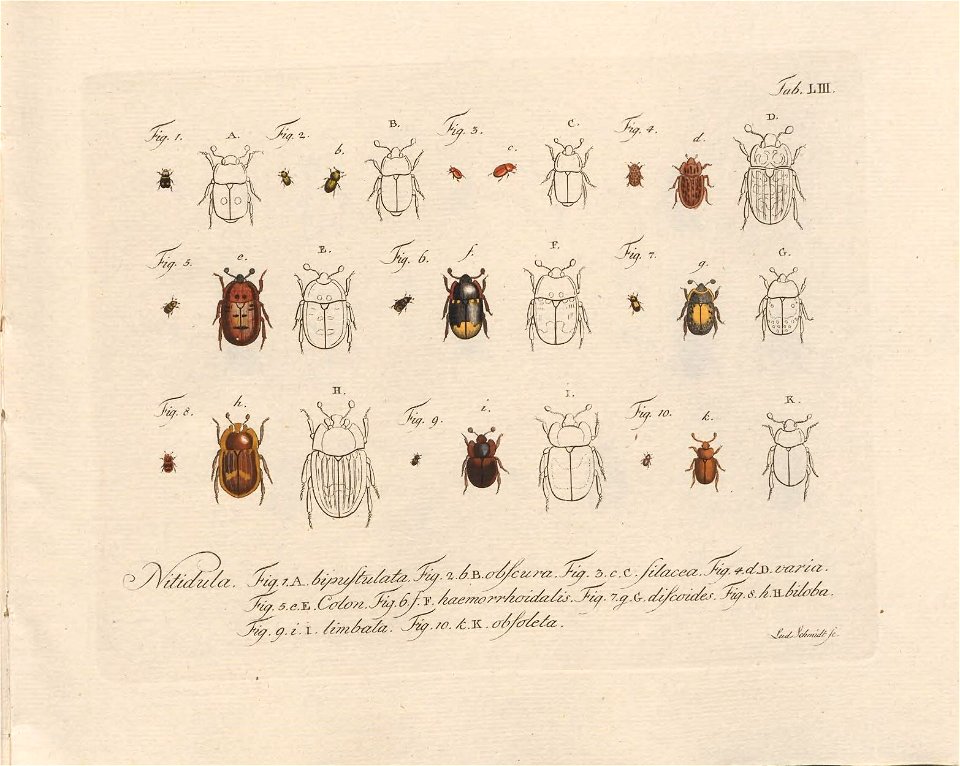 Tab. LIII.
Fig. 1. A. Fig. 2. b. B. Fig. 3. c. C. Fig. 4. d. D.
Fig. 5. e. E. Fig. 6. f. F. Fig. 7. g. G.
Fig. 8. h. H. Fig. 9. i. I. Fig. 10. k. K.
Nitidula. Fig. 1. A. bipuſtulata. Fig. 2. b. B. obſcura. Fig. 3. c. C. ſilacea. Fig. 4. d. D. varia.
Fig. 5. e. E. Colon. Fig. 6. f. F. haemorrhoidalis. Fig. 7. g. G. diſcoides. Fig. 8. h. H. biloba.
Fig. 9. i. I. limbata. Fig. 10. k. K. obſoleta.
Lud. Schmidt ſc.